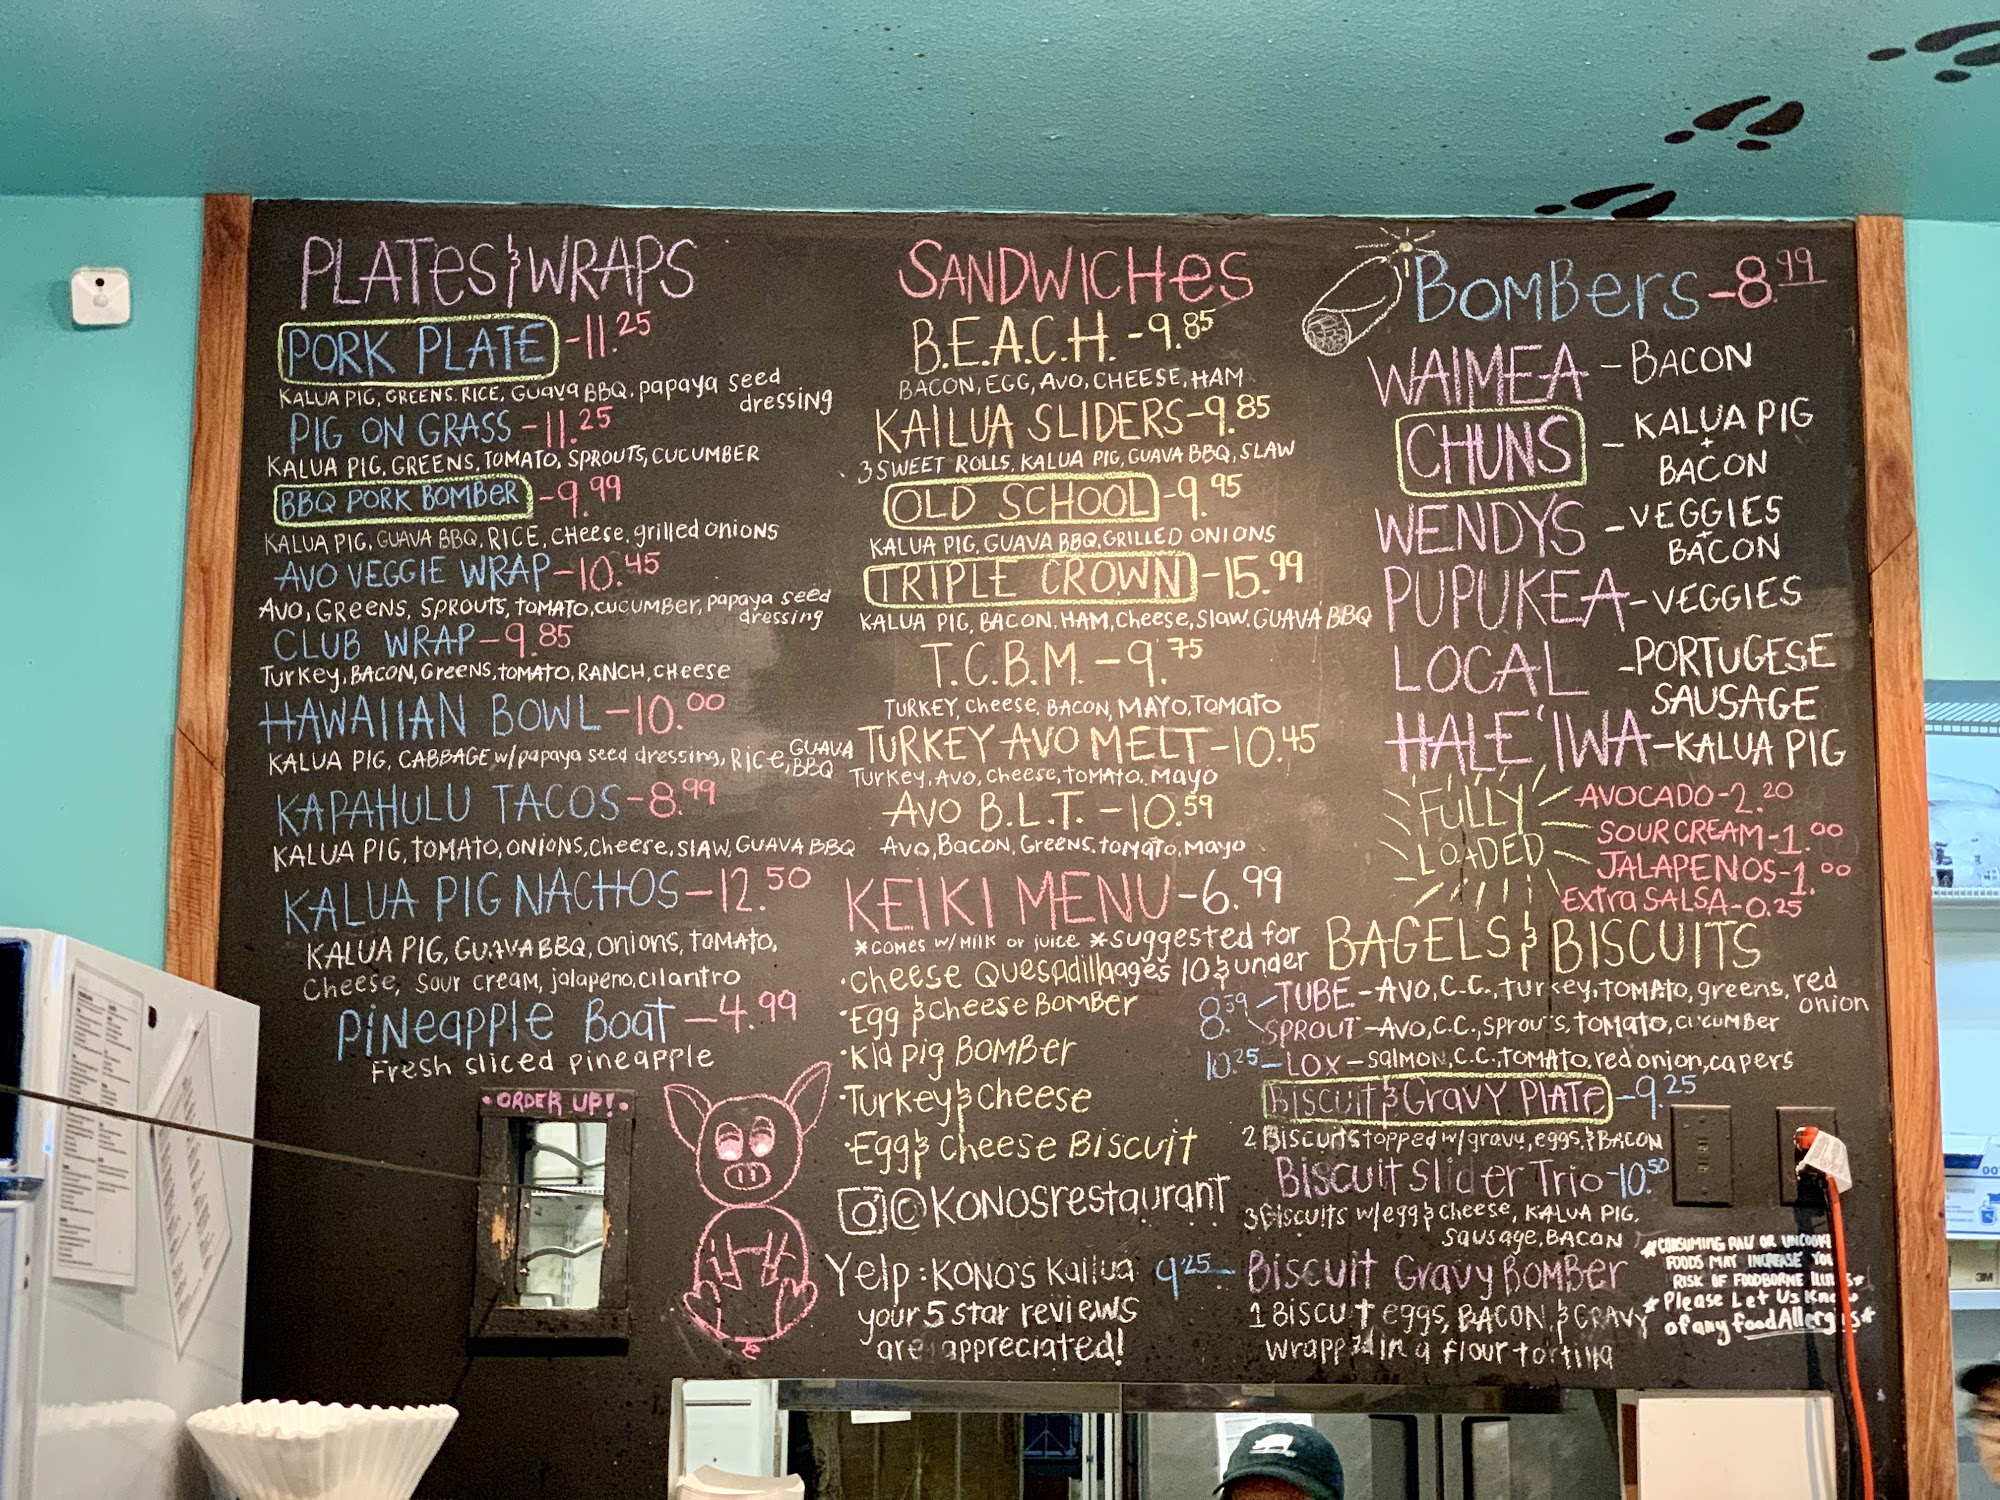 PLATES & WRAPS
PORK PLATE -11.25
KALUA PIG, GREENS, RICE, GUAVA BBQ, papaya seed
dressing
PIG ON GRASS -11.25
KALUA PIG, GREENS, TOMATO, SPROUTS, CUCUMBER
BBQ PORK BOMBER -9.99
KALUA PIG, GUAVA BBQ, RICE, CHeese, grilled onions
AVO VEGGIE WRAP -10.45
AVO, GREENS, SPROUTS, TOMATO, CUCUMBER, papaya seed
dressing
CLUB WRAP -9.85
Turkey, BACON, Greens, TOMATO, RANCH, CHeese
HAWAIIAN BOWL -10.00
KALUA PIG, CABBAGE w/papaya seed dressing, RICE, GUAVA
BBQ
KAPAHULU TACOS -8.99
KALUA PIG, TOMATO, ONIONS, Cheese, SLAW, GUAVA BBQ
KALUA PIG NACHOS -12.50
KALUA PIG, GUAVA BBQ, Onions, TOMATO,
Cheese, Sour cream, jalapeno, cilantro
PiNeapple BoaT -4.99
Fresh sliced pineapple
•ORDER UP!•
SANDWICHES
B.E.A.C.H. -9.85
BACON, EGG, AVO, CHEESE, HAM
KAILUA SLIDERS -9.85
3 SWEET ROLLS, KALUA PIG, GUAVA BBQ, SLAW
OLD SCHOOL -9.95
KALUA PIG, GUAVA BBQ, GRILLED ONIONS
TRIPLE CROWN -15.99
KALUA PIG, BACON, HAM, Cheese, Slaw, GUAVA BBQ
T.C.B.M. -9.75
TURKEY, Cheese, BACON, MAYO, TOMATO
TURKEY AVO MELT -10.45
Turkey, AVO, Cheese, TOMATO, Mayo
AVO B.L.T. -10.59
AVO, BACON, Greens, tomato, Mayo
KEIKI MENU -6.99
*COMES W/ MILK or juice *Suggested for
ages 10 & under
•Cheese Quesadilla
•Egg & Cheese BOMBER
•Kid pig BOMBER
•Turkey & Cheese
•Egg & Cheese BISCUIT
@KONOSrestaurant
Yelp: KONO's Kailua
your 5 star reviews
are appreciated!
BOMBERS -8.99
WAIMEA -BACON
CHUNS - KALUA PIG
+
BACON
WENDYS -VEGGIES
+
BACON
PUPUKEA -VEGGIES
LOCAL -PORTUGESE
SAUSAGE
HALE'IWA -KALUA PIG
FULLY
LOADED
AVOCADO -2.20
SOUR CREAM -1.00
JALAPENOS -1.00
EXTra SALSA -0.25
BAGELS & BISCUITS
8.59 TUBE -AVO, C.C., turkey, TOMATO, greens, red
onion
SPROUT -AVO, C.C., SProuts, TOMATO, CUCUMBER
10.25 -LOX -Salmon, C.C. TOMATO, red onion, capers
BISCUIT & GRAVY PLATE -9.25
2 BISCUITS topped w/gravy, eggs, & BACON
BISCUIT Slider Trio -10.50
3 BISCUITS w/egg & cheese, KALUA PIG,
Sausage, BACON
9.25 BISCUIT Gravy BOMBER
1 BISCUIT, eggs, BACON, & GRAVY
Wrapped in a flour tortilla
*CONSUMING RAW OR UNCOOKED
FOODS MAY INCREASE YOUR
RISK OF FOODBORNE ILLNESS*
*Please Let Us Know
of any food Allergies*